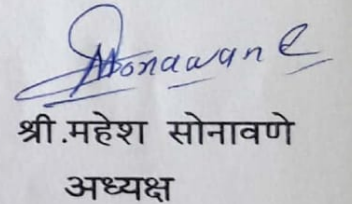 MSonawane
श्री.महेश सोनावणे
अध्यक्ष